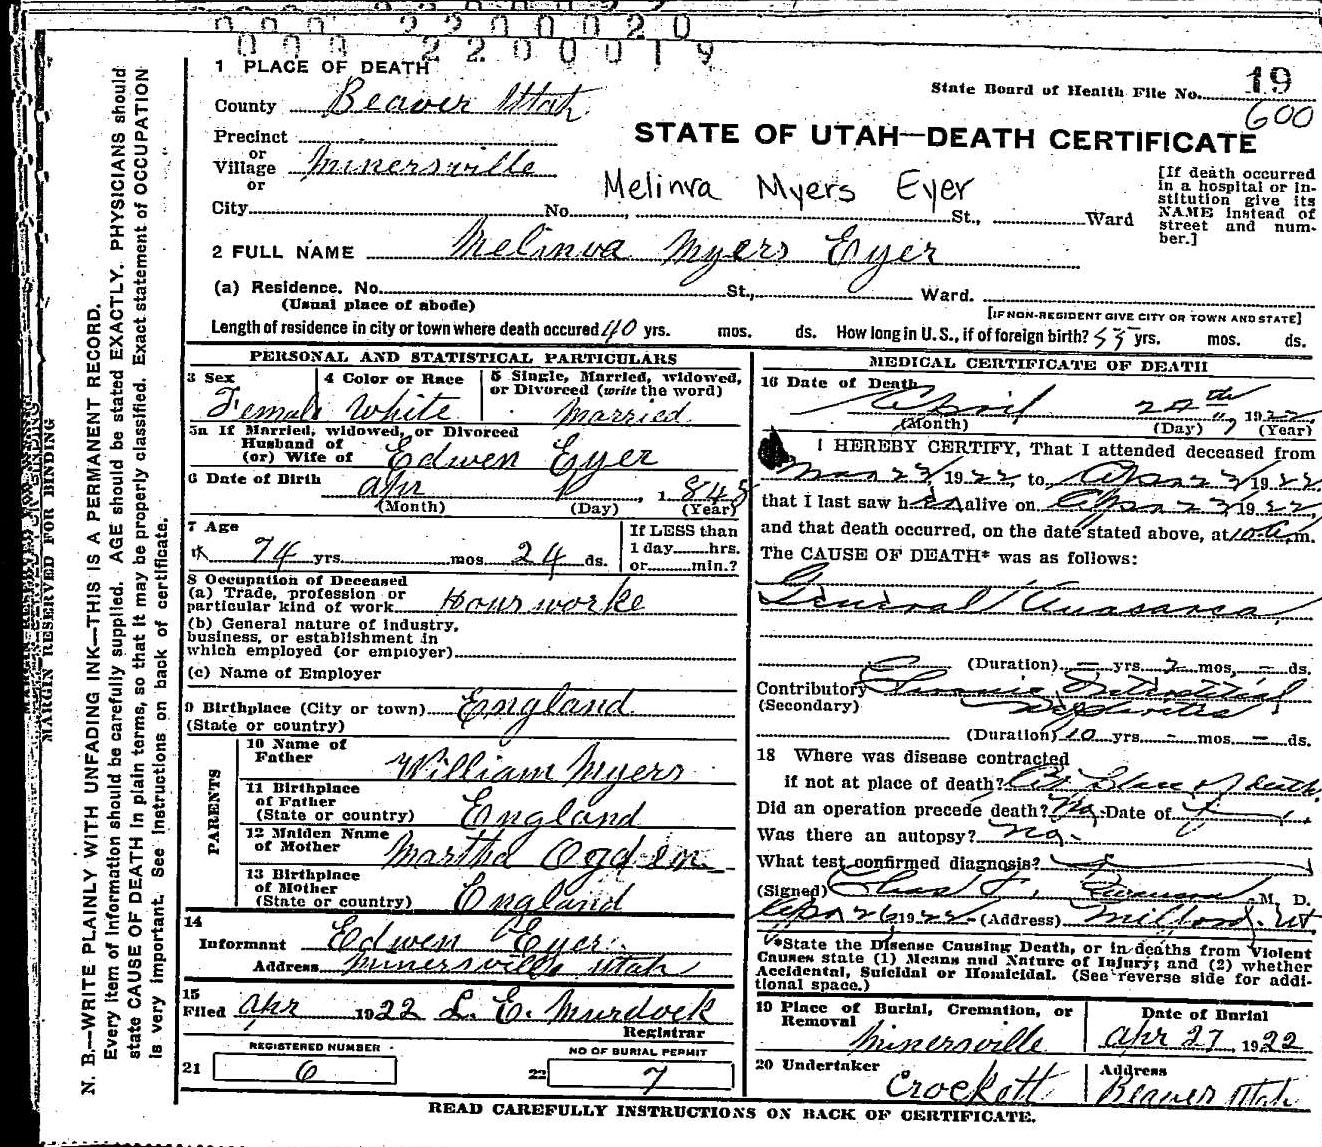 000 2200020
000 2200019
1 PLACE OF DEATH
County Beaver Utah
State Board of Health File No. 19
600
Precinct
STATE OF UTAH—DEATH CERTIFICATE
or
Village Minersville
or
Melinva Myers Eyer
[If death occurred
in a hospital or in-
stitution give its
NAME instead of
street and num-
ber.]
City No. , St., Ward
2 FULL NAME Melinva Myers Eyer
(a) Residence. No. St., Ward.
(Usual place of abode)
[IF NON-RESIDENT GIVE CITY OR TOWN AND STATE]
Length of residence in city or town where death occured 40 yrs. mos. ds. How long in U.S., if of foreign birth? 55 yrs. mos. ds.
PERSONAL AND STATISTICAL PARTICULARS
3 Sex
Female
4 Color or Race
White
5 Single, Married, widowed,
or Divorced (write the word)
Married
5a If Married, widowed, or Divorced
Husband of
(or) Wife of Edwen Eyer
6 Date of Birth apr 1, 1848
(Month) (Day) (Year)
7 Age
74 yrs. mos. 24 ds.
If LESS than
1 day hrs.
or min.?
8 Occupation of Deceased
(a) Trade, profession or
particular kind of work Hous worke
(b) General nature of industry,
business, or establishment in
which employed (or employer)
(c) Name of Employer
9 Birthplace (City or town) England
(State or country)
PARENTS
10 Name of
Father William Myers
11 Birthplace
of Father
(State or country) England
12 Maiden Name
of Mother Martha Ogden
13 Birthplace
of Mother
(State or country) England
14
Informant Edwen Eyer
Address Minersville Utah
15
Filed apr 1922 L. E. Murdock
Registrar
REGISTERED NUMBER
21 6
NO OF BURIAL PERMIT
22 7
MEDICAL CERTIFICATE OF DEATH
16 Date of Death
April th 1922
(Month) (Day) (Year)
I HEREBY CERTIFY, That I attended deceased from
Mar 23 1922, to Apr 23 1922
that I last saw her alive on Apr 23 1922,
and that death occurred, on the date stated above, at 10 a.m.
The CAUSE OF DEATH* was as follows:
General Anasarca
(Duration) — yrs. 2 mos. — ds.
Contributory Chronic Interstitial
(Secondary) Nephritis
(Duration) 10 yrs. — mos. — ds.
18 Where was disease contracted
if not at place of death? At Place of death.
Did an operation precede death? No. Date of
Was there an autopsy? No.
What test confirmed diagnosis?
(Signed) Chas M. D.
Apr 26 1922 (Address) Milford, Ut.
*State the Disease Causing Death, or in deaths from Violent
Causes state (1) Means and Nature of Injury; and (2) whether
Accidental, Suicidal or Homicidal. (See reverse side for addi-
tional space.)
19 Place of Burial, Cremation, or
Removal
Minersville
Date of Burial
apr 27, 1922
20 Undertaker
Crockett
Address
Beaver Utah
READ CAREFULLY INSTRUCTIONS ON BACK OF CERTIFICATE.
MARGIN RESERVED FOR BINDING
N. B.—WRITE PLAINLY WITH UNFADING INK—THIS IS A PERMANENT RECORD.
Every item of information should be carefully supplied. AGE should be stated EXACTLY. PHYSICIANS should
state CAUSE OF DEATH in plain terms, so that it may be properly classified. Exact statement of OCCUPATION
is very important. See instructions on back of certificate.